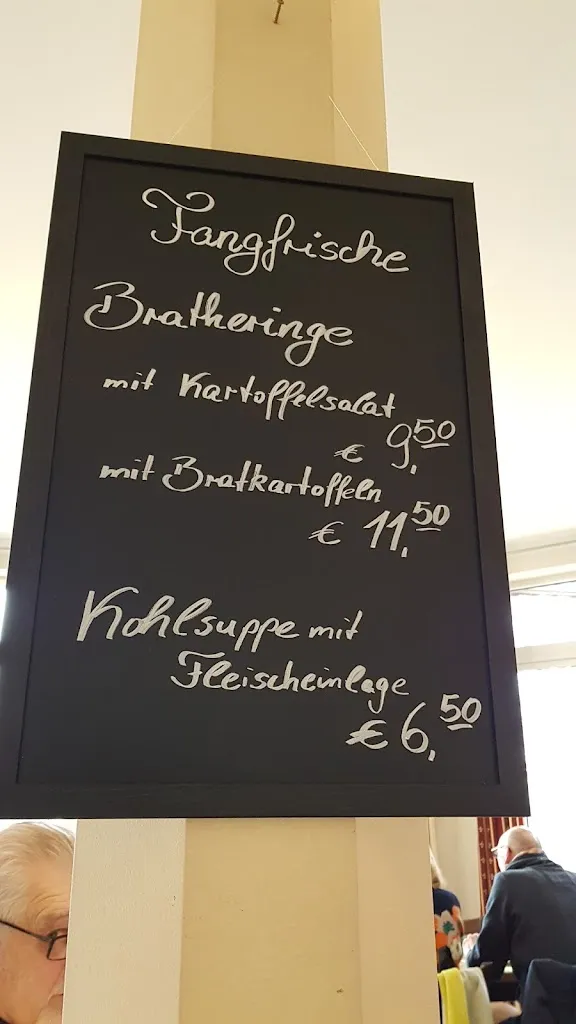 Fangfrische
Bratheringe
mit Kartoffelsalat
€ 9,50
mit Bratkartoffeln
€ 11,50
Kohlsuppe mit
Fleischeinlage
€ 6,50